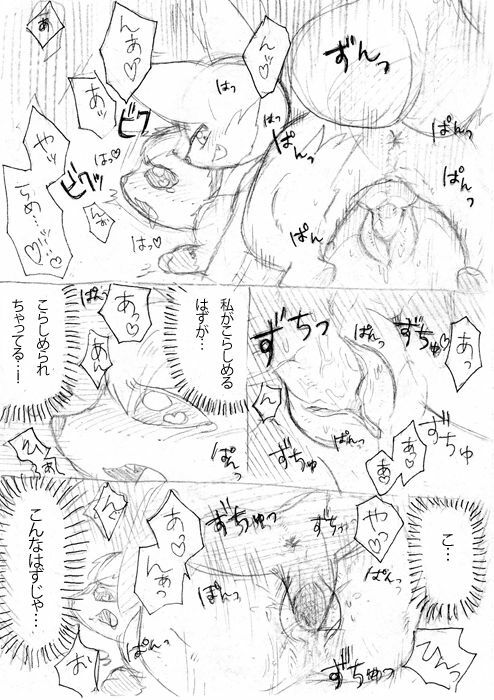 ずんっ
んっ♡
んあっ♡
あ
あッ
ビク
はっ
はっ
ぱんっ
ぱんっ
ぱんっ
ぱん
はっ♡
はっ♡
やッ
ビクッ
んぁ
らめ…ッ…♡♡
私がこらしめる
はずが…
こらしめられ
ちゃってる…!
ぱんっ
あっ♡
あん
ぱんっ
んぁ
ずちっ
ぱんっ
ずちゅっ
あっ
ん
ずちゅ
ぱんっ
ずちゅ
あ♡
あ
こ…
やっ♡
ずちゅっ
ずちゅっ
ぱんっ
ぱんっ
あ♡
んあっ
ん
こんなはずじゃ…
ぱんっ
ずちゅっ
ひんっ